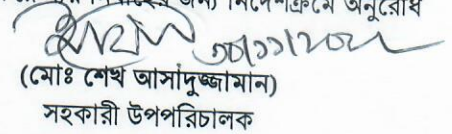 জন্য নির্দেশক্রমে অনুরোধ
৩০/১১/২০২০
(মোঃ শেখ আসাদুজ্জামান)
সহকারী উপপরিচালক